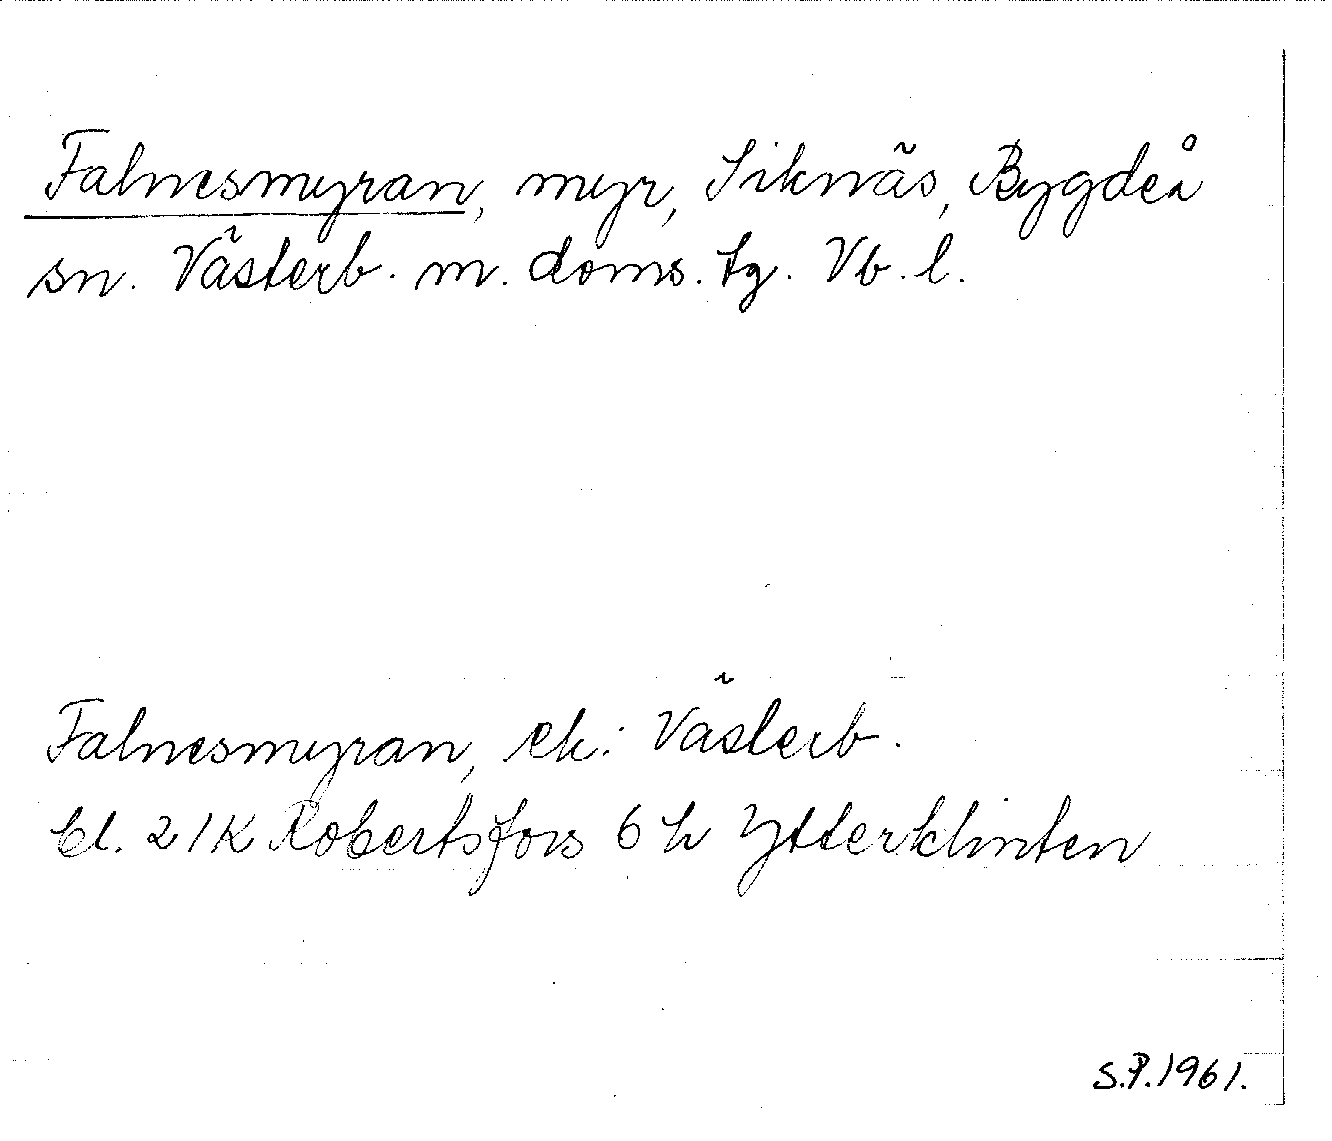 Falnesmyran, myr, Siknäs, Bygdeå
sn. Västerb. m. doms. tg. Vb. l.
Falnesmyran, ek: Västerb.
bl. 21K Robertsfors 6 h Ytterklinten
S.P.1961.